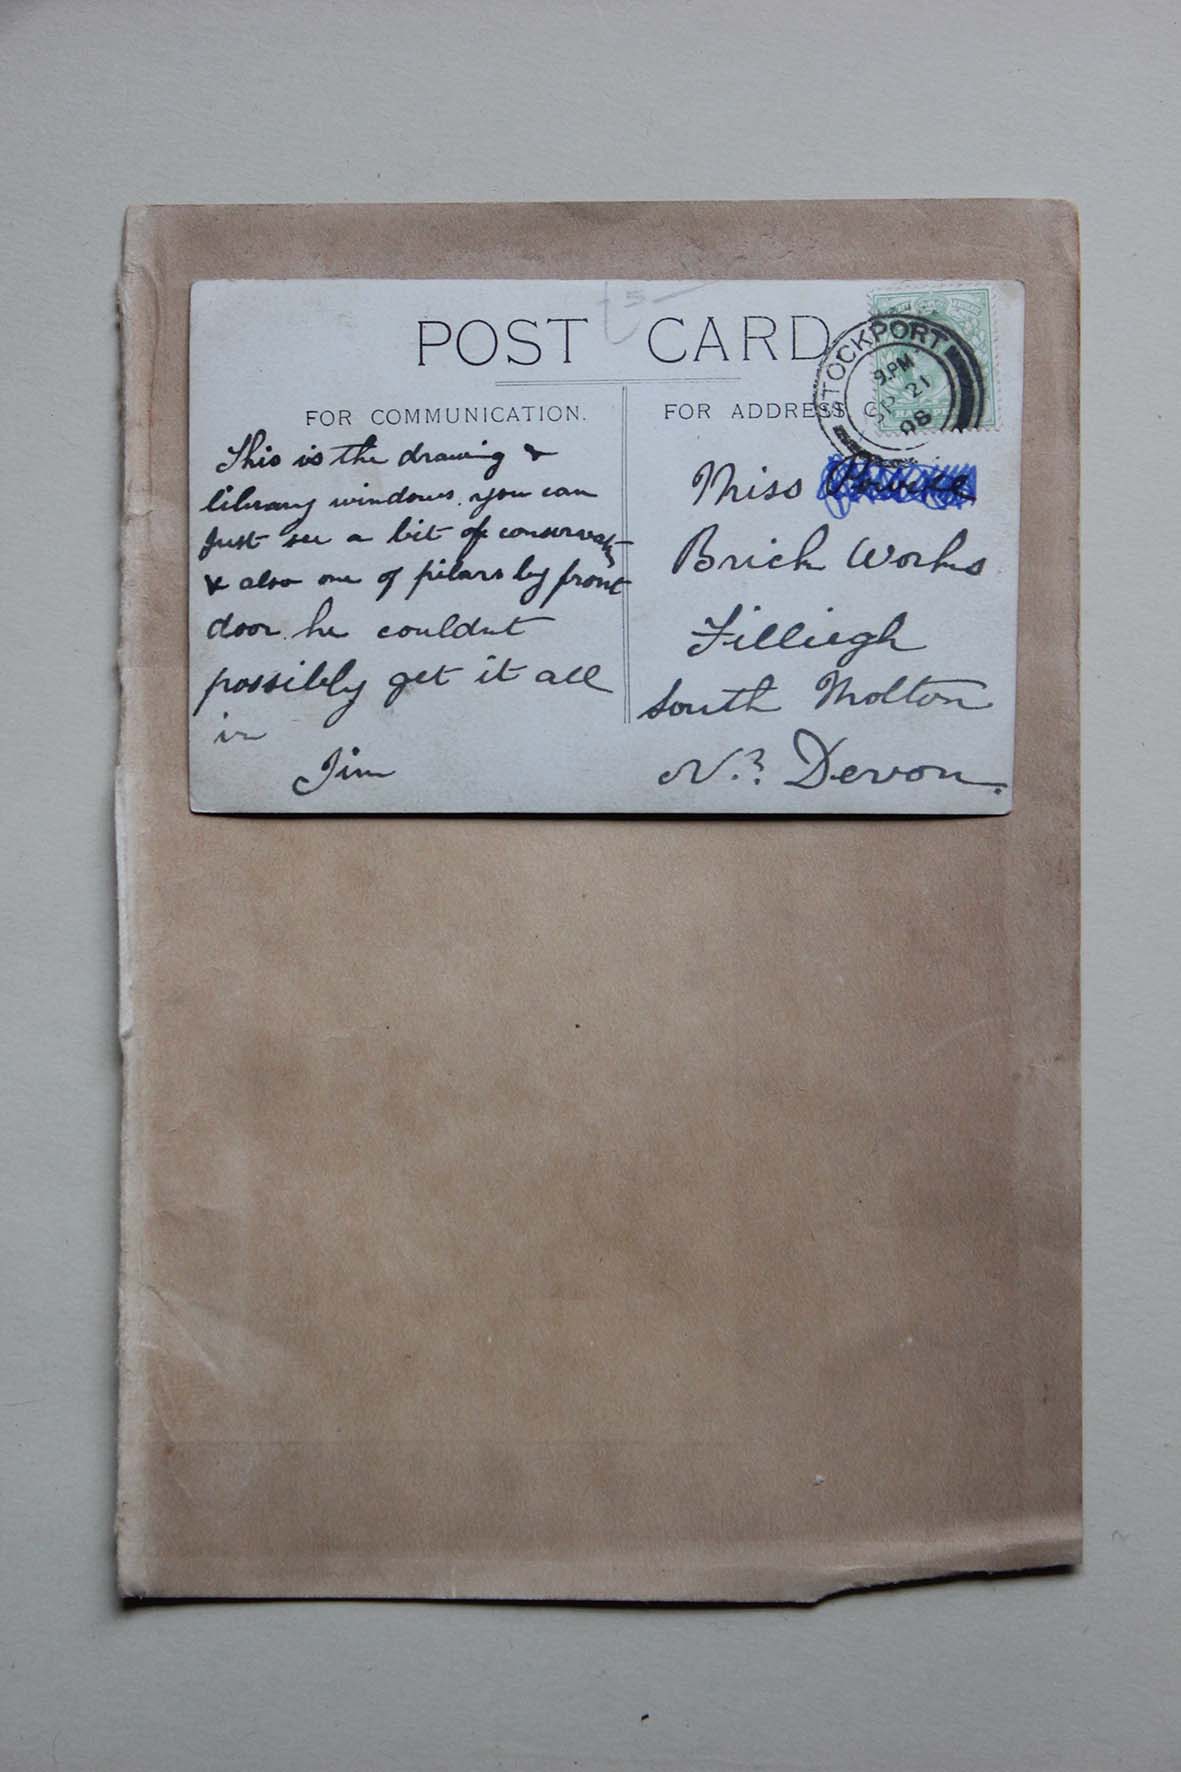 POST CARD
FOR COMMUNICATION.
FOR ADDRESS
STOCKPORT
9.PM
SP 21
08
This is the drawing &
library windows. you can
just see a bit of conservatory
& also one of pilars by front
door. he couldnt
possibly get it all
in
Jim
Miss
Brick Works
Filliegh
South Molton
Nr. Devon.